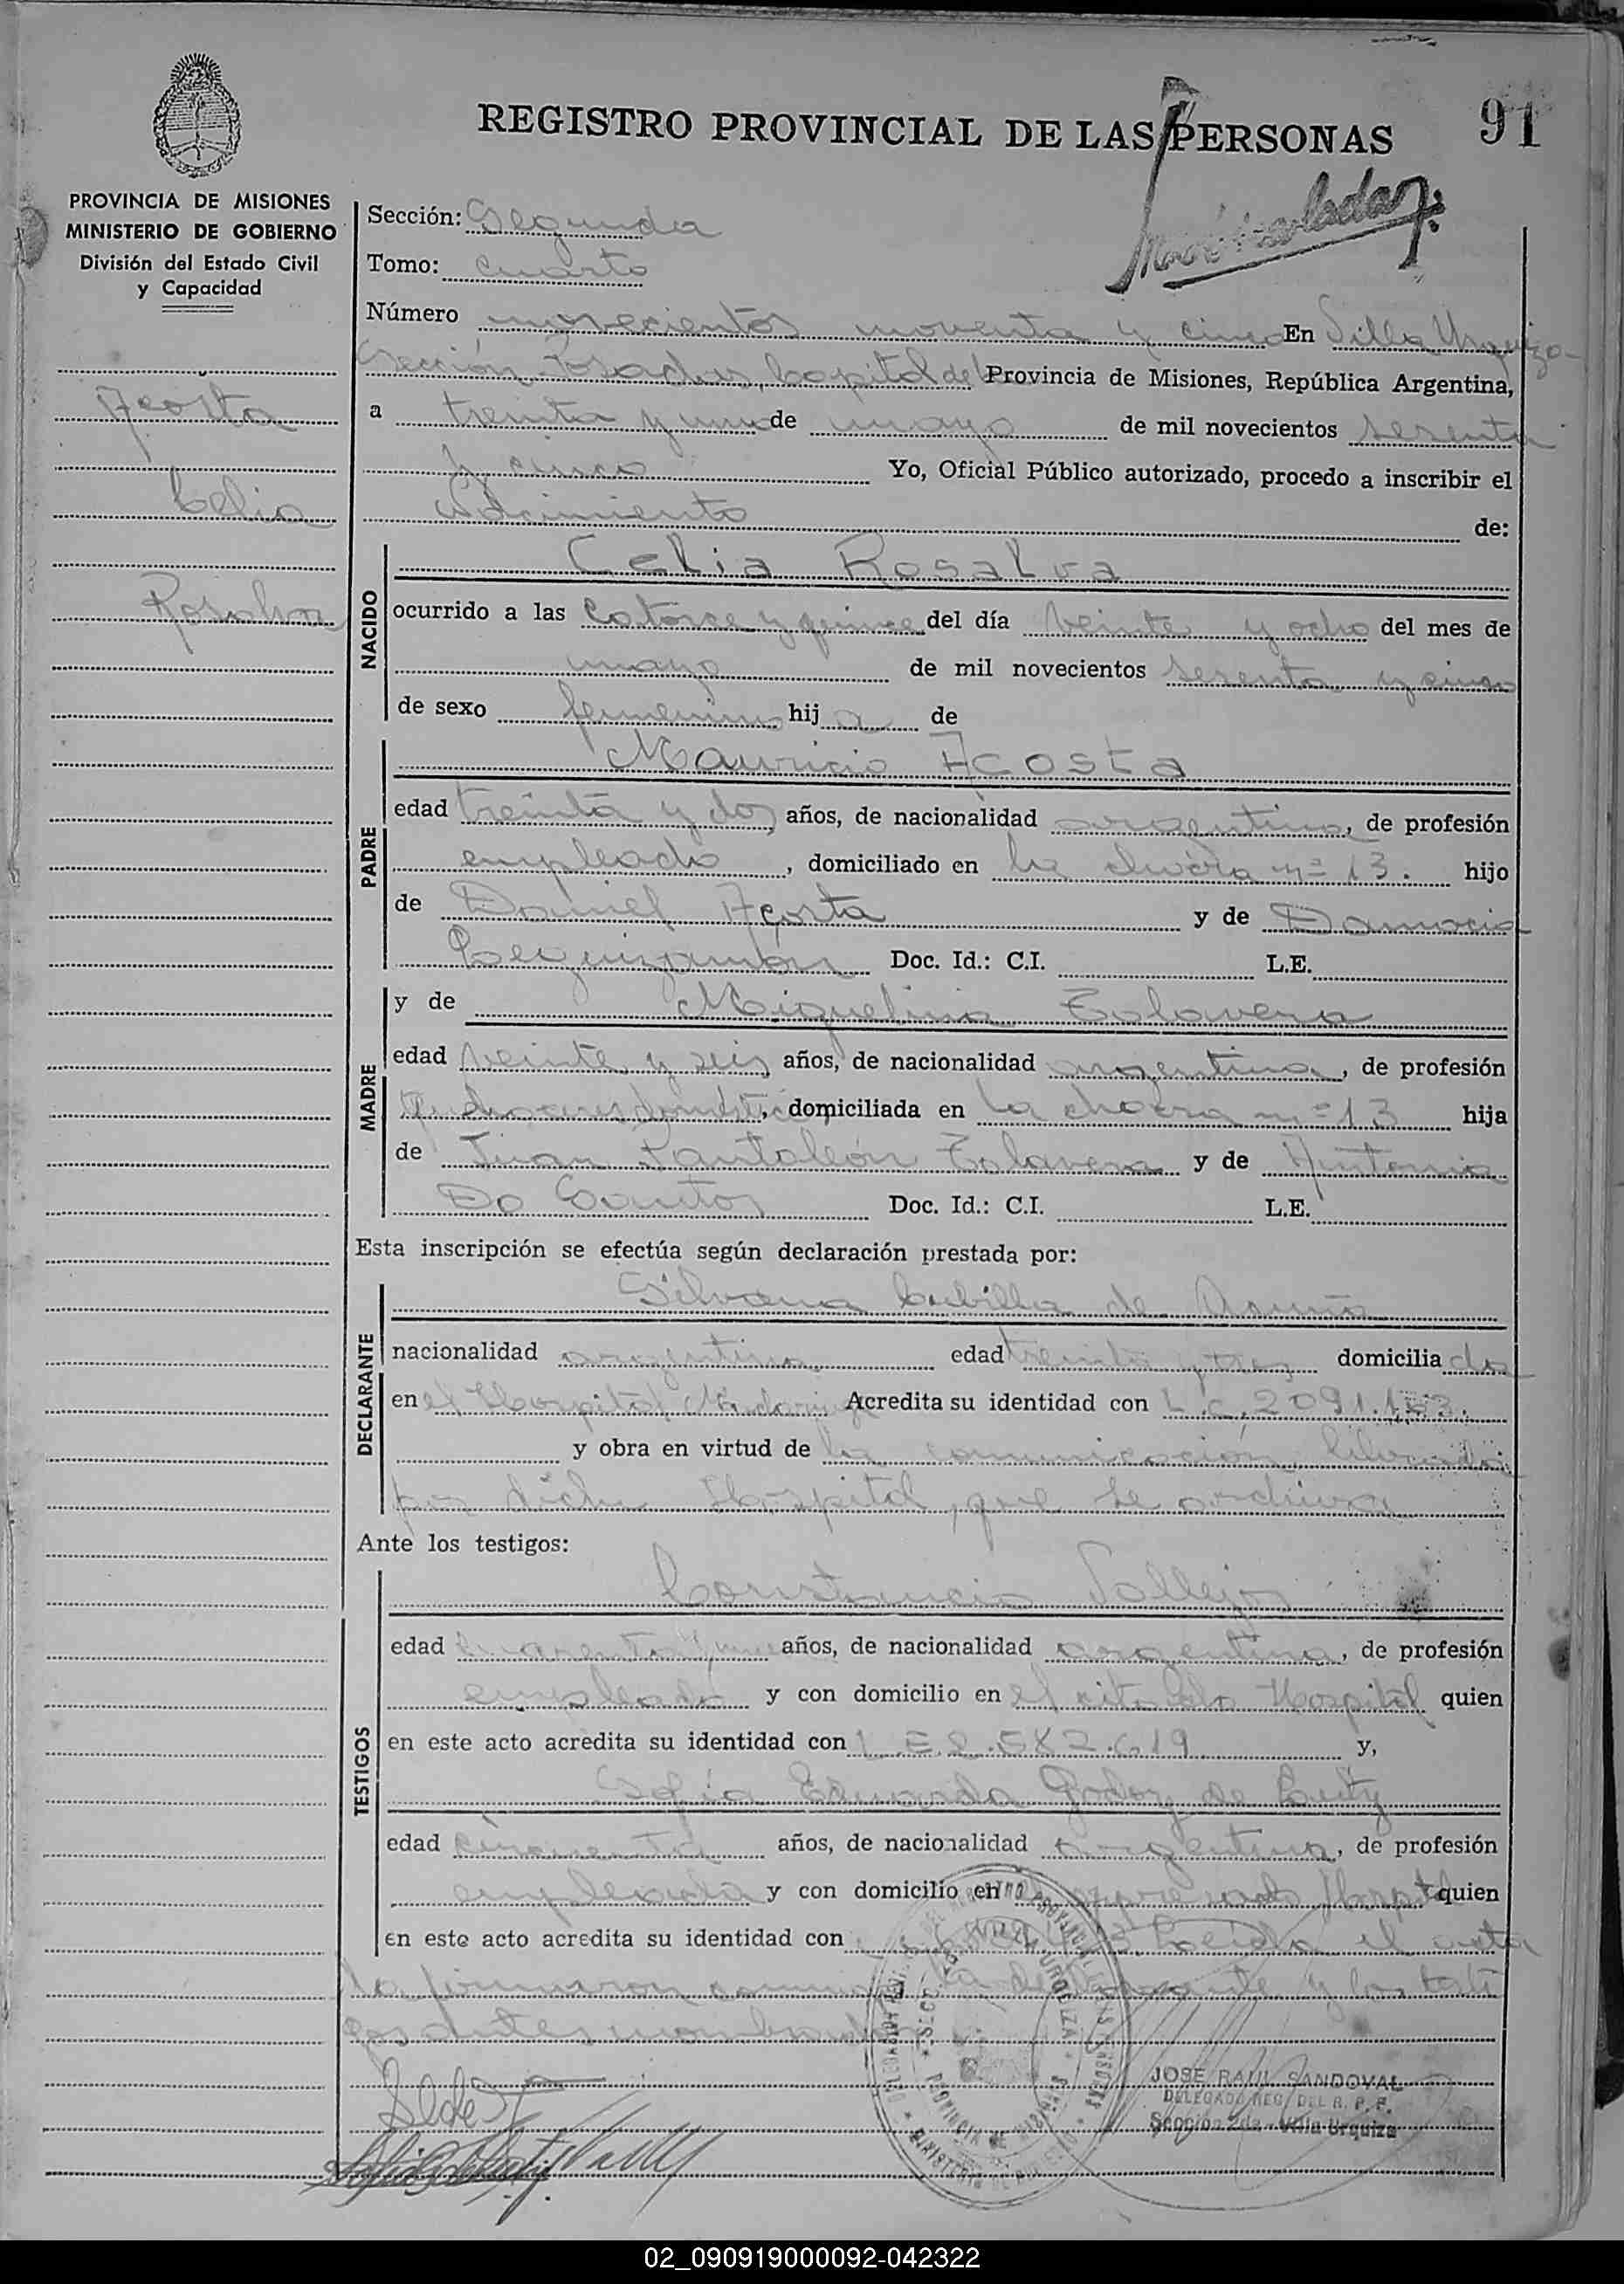 REGISTRO PROVINCIAL DE LAS PERSONAS
91
PROVINCIA DE MISIONES
MINISTERIO DE GOBIERNO
División del Estado Civil
y Capacidad
Acosta
Celia
Rosalva
Sección: Segunda
Tomo: Cuarto
Número novecientos noventa y cinco En Villa Urquiza
Sección Posadas, Capital de Provincia de Misiones, República Argentina,
a treinta y uno de mayo de mil novecientos sesenta
y cinco Yo, Oficial Público autorizado, procedo a inscribir el
Nacimiento de:
NACIDO
Celia Rosalva
ocurrido a las Catorce y quince del día veinte y ocho del mes de
mayo de mil novecientos sesenta y cinco
de sexo femenino hija de
PADRE
Mauricio Acosta
edad treinta y dos años, de nacionalidad argentina, de profesión
empleado, domiciliado en la chacra nº 13. hijo
de Daniel Acosta y de
Leguizamón Doc. Id.: C.I. L.E.
MADRE
y de Miguelina Talavera
edad veinte y seis años, de nacionalidad argentina, de profesión
quehaceres domésti, domiciliada en la chacra nº 13 hija
de Juan Pantaleón Talavera y de Antonia
Do Santos Doc. Id.: C.I. L.E.
Esta inscripción se efectúa según declaración prestada por:
DECLARANTE
Silvana Cubilla de Acuña
nacionalidad argentina edad treinta y tres domiciliada
en el Hospital Madariaga Acredita su identidad con L.C. 2091.163.
y obra en virtud de la comunicación librada
por dicho Hospital, que se archiva
Ante los testigos:
TESTIGOS
Constancio Vallejos
edad cuarenta y años, de nacionalidad argentina, de profesión
empleado y con domicilio en el citado Hospital quien
en este acto acredita su identidad con L.E 2.582.619 y,
Sofía Eduarda Godoy de
edad cincuenta años, de nacionalidad argentina, de profesión
empleada y con domicilio en expresado Hospt quien
en este acto acredita su identidad con Leida el acta
la firmaron conmigo la declarante y los testi
gos antes nombrados
JOSE RAUL SANDOVAL
DELEGADO REG. DEL R. P. P.
Sección 2da - Villa Urquiza
02_090919000092-042322